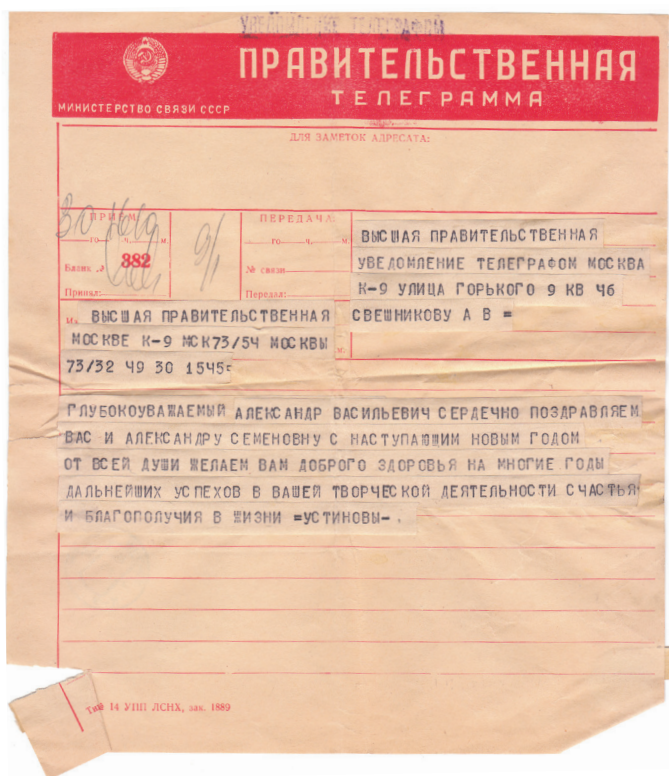 УВЕДОМЛЕНИЕ ТЕЛЕГРАФОМ
ПРАВИТЕЛЬСТВЕННАЯ
ТЕЛЕГРАММА
МИНИСТЕРСТВО СВЯЗИ СССР
ДЛЯ ЗАМЕТОК АДРЕСАТА:
ПРИЕМ
го ч. м.
Бланк №
382
Принял:
9/1
ПЕРЕДАЧА:
го ч. м.
№ связи
Передал:
ВЫСШАЯ ПРАВИТЕЛЬСТВЕННАЯ
УВЕДОМЛЕНИЕ ТЕЛЕГРАФОМ МОСКВА
К-9 УЛИЦА ГОРЬКОГО 9 КВ Ч6
СВЕШНИКОВУ А В =
ВЫСШАЯ ПРАВИТЕЛЬСТВЕННАЯ
МОСКВЕ К-9 МСК73/5Ч МОСКВЫ
73/32 Ч9 30 15Ч5=
ГЛУБОКОУВАЖАЕМЫЙ АЛЕКСАНДР ВАСИЛЬЕВИЧ СЕРДЕЧНО ПОЗДРАВЛЯЕМ
ВАС И АЛЕКСАНДРУ СЕМЕНОВНУ С НАСТУПАЮШИМ НОВЫМ ГОДОМ
ОТ ВСЕЙ ДУШИ ЖЕЛАЕМ ВАМ ДОБРОГО ЗДОРОВЬЯ НА МНОГИЕ ГОДЫ
ДАЛЬНЕЙШИХ УСПЕХОВ В ВАШЕЙ ТВОРЧЕСКОЙ ДЕЯТЕЛЬНОСТИ СЧАСТЬЯ
И БЛАГОПОЛУЧИЯ В ЖИЗНИ =УСТИНОВЫ-.
Тип 14 УПП ЛСНХ, зак. 1889